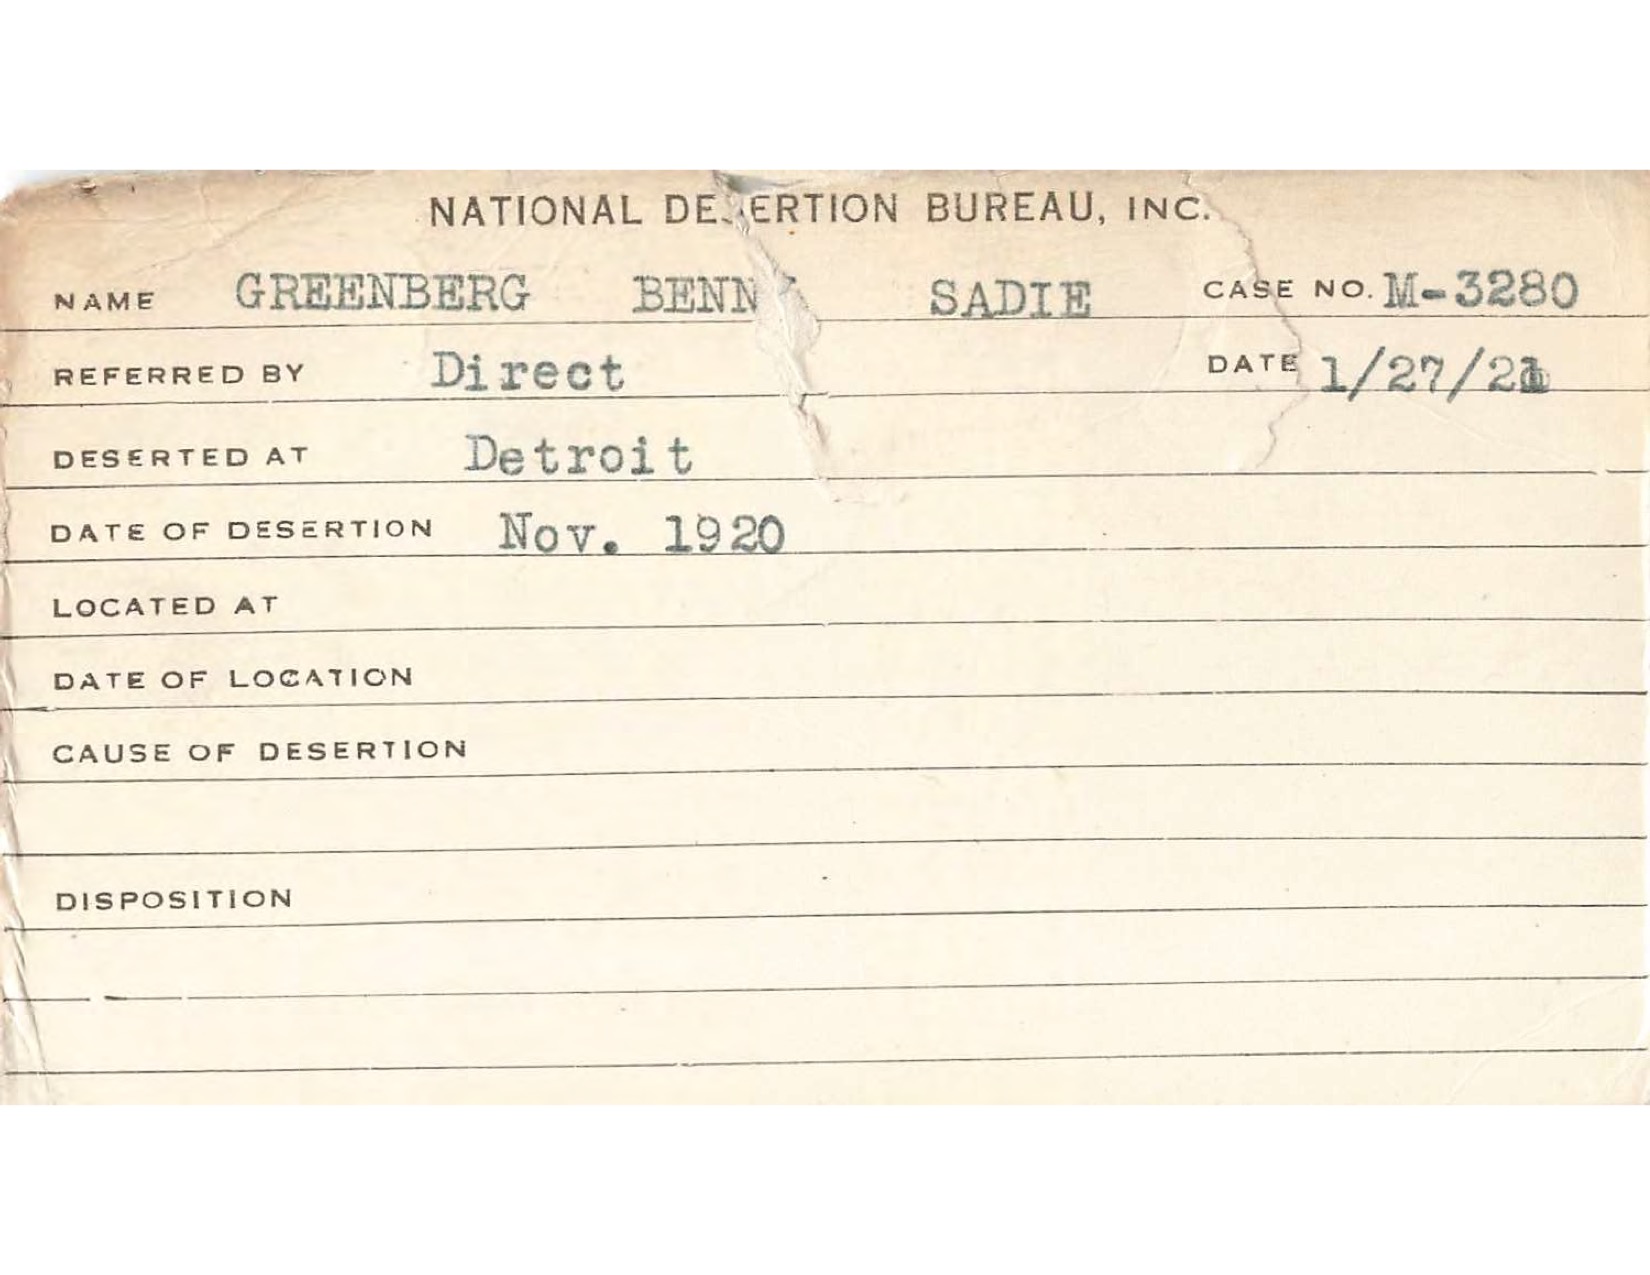 NATIONAL DESERTION BUREAU, INC.
NAME GREENBERG BENNY SADIE CASE NO. M-3280
REFERRED BY Direct DATE 1/27/21
DESERTED AT Detroit
DATE OF DESERTION Nov. 1920
LOCATED AT
DATE OF LOCATION
CAUSE OF DESERTION
DISPOSITION